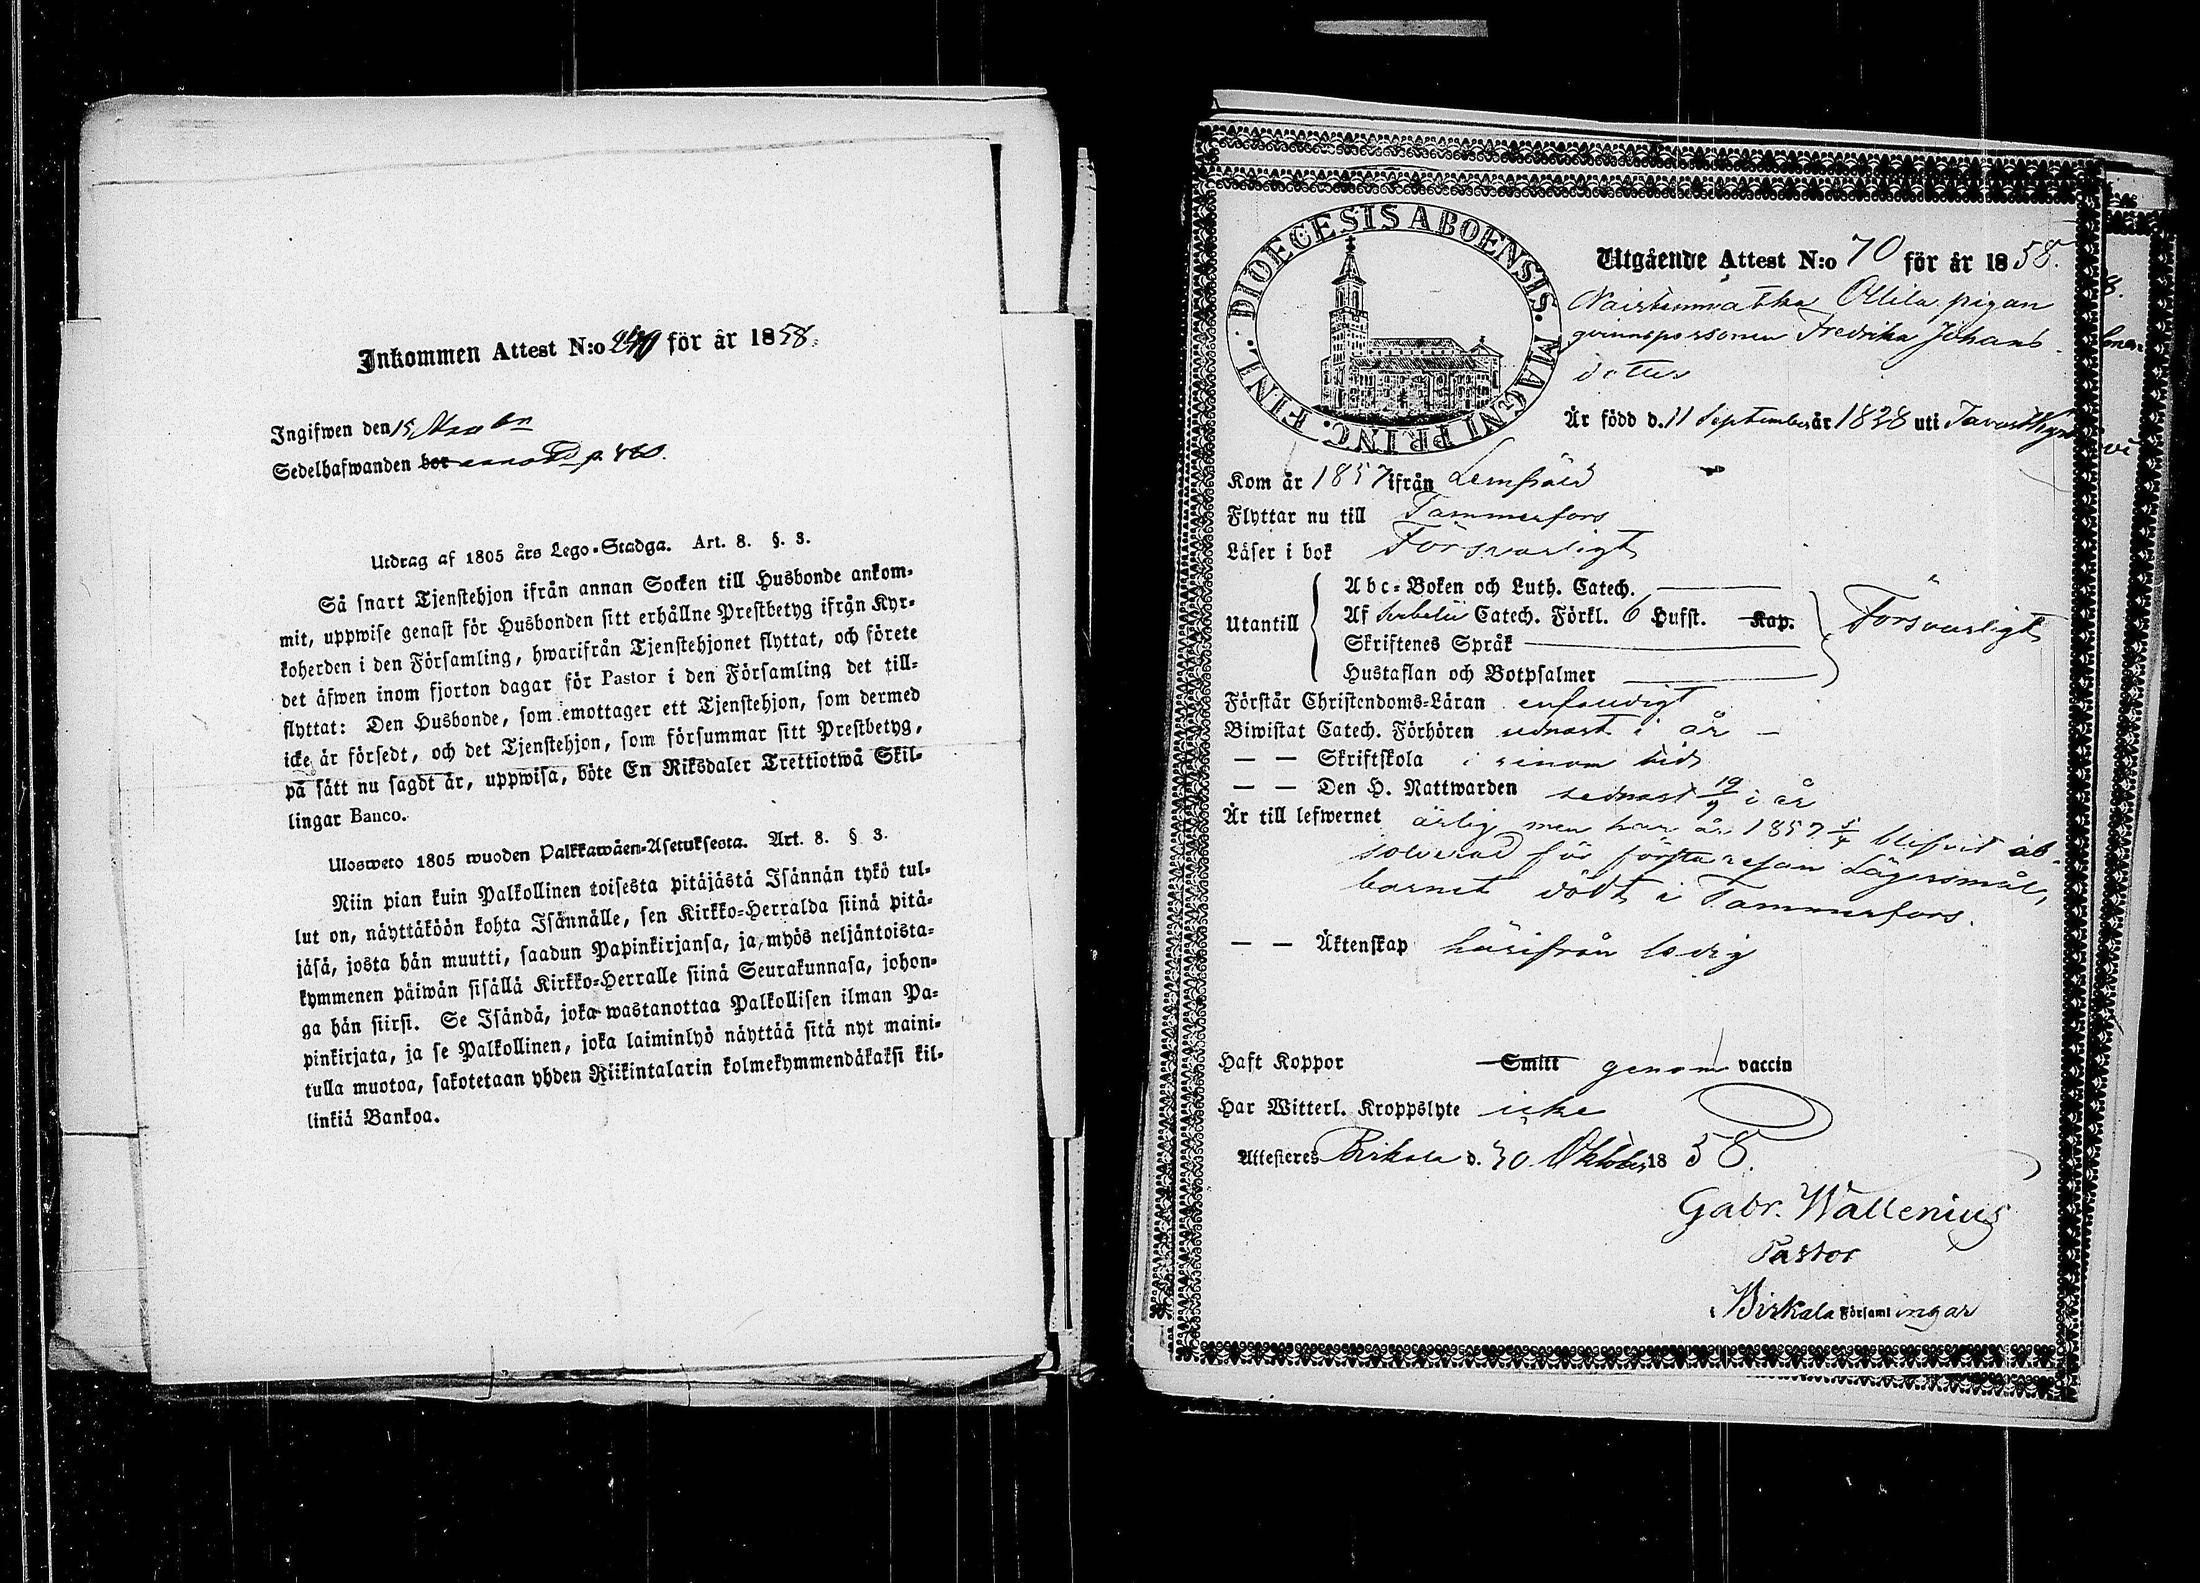 Inkommen Attest N:o 240 för år 1858.
Ingifwen den 15 Novbr
Sedelhafwanden bor annoteras p. 460.
Utdrag af 1805 års Lego-Stadga. Art. 8. §. 3.
Så snart Tjenstehjon ifrån annan Socken till Husbonde ankom-
mit, uppwise genast för Husbonden sitt erhållne Prestbetyg ifrån Kyr-
koherden i den Församling, hwarifrån Tjenstehjonet flyttat, och förete
det äfwen inom fjorton dagar för Pastor i den Församling det till-
flyttat: Den Husbonde, som emottager ett Tjenstehjon, som dermed
icke är försedt, och det Tjenstehjon, som försummar sitt Prestbetyg,
på sätt nu sagdt är, uppwisa, böte En Riksdaler Trettiotwå Skil-
lingar Banco.
Ulosweto 1805 wuoden Palkkawäen-Asetuksesta. Art. 8. § 3.
Niin pian kuin Palkollinen toisesta pitäjästä Isännän tykö tul-
lut on, näyttäköön kohta Isännälle, sen Kirkko-Herralda siinä pitä-
jäsä, josta hän muutti, saadun Papinkirjansa, ja myös neljäntoista-
kymmenen päiwän sisällä Kirkko-Herralle siinä Seurakunnasa, johon-
ga hän siirsi. Se Isändä, joka wastanottaa Palkollisen ilman Pa-
pinkirjata, ja se Palkollinen, joka laiminlyö näyttää sitä nyt maini-
tulla muotoa, sakotetaan yhden Riikintalarin kolmekymmendäkaksi kil-
linkiä Bankoa.
DIOECESIS ABOENSIS. MAGNI PRINC. FINL.
Utgående Attest N:o 70 för år 1858.
Naistenmatka Ollila pigan
qvinnspersonen Fredrika Johans
dotter
Är född d. 11 September år 1828 uti Tavastkyro
Kom år 1857 ifrån Lempäälä
Flyttar nu till Tammerfors
Läser i bok Försvarligt
Utantill
Abc-Boken och Luth. Catech.
Af Svebelii Catech. Förkl. 6 Hufst. Kap.
Skriftenes Språk
Hustaflan och Botpsalmer
Försvarligt
Förstår Christendoms-Läran enfaldigt
Biwistat Catech. Förhören sednast i år
— — Skriftskola i sinom tid
— — Den H. Nattwarden sednast 19/9 i år
Är till lefwernet ärlig men har år 1857 5/4 blifvit ab-
solverad för första resan Lägersmål,
barnet dödt i Tammerfors.
— — Äktenskap härifrån ledig
Haft Koppor Smitt genom vaccin
Har Witterl. Kroppslyte icke
Attesteres Birkala d. 30 Oktober 1858.
Gabr. Wallenius
Pastor
i Birkala Församlingar